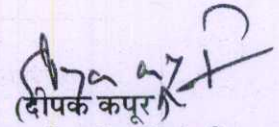 (दीपक कपूर)